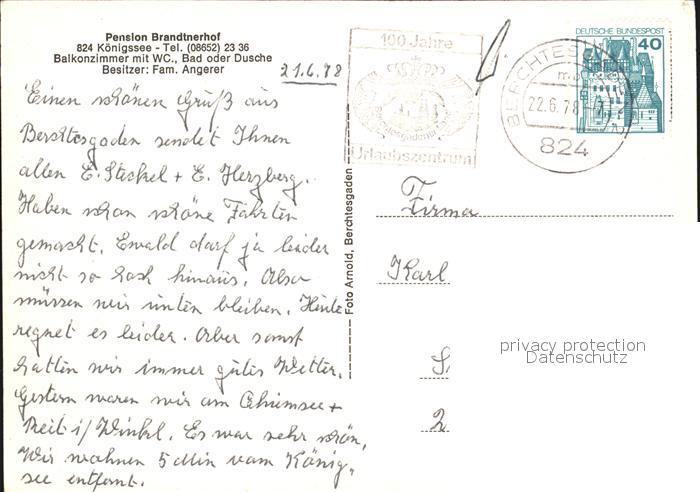 Pension Brandtnerhof
824 Königssee - Tel. (08652) 23 36
Balkonzimmer mit WC., Bad oder Dusche
Besitzer: Fam. Angerer
21.6.78
Einen schönen Gruß aus
Berchtesgaden sendet Ihnen
allen E. Steckel + E. Herzberg.
Haben schon schöne Fahrten
gemacht. Ewald darf ja leider
nicht so hoch hinaus. Also
müssen wir unten bleiben. Heute
regnet es leider. Aber sonst
hatten wir immer gutes Wetter.
Gestern waren wir am Chiemsee +
Reit i/Winkl. Es war sehr schön,
Wir wohnen 5 Min vom König-
see entfernt.
Foto Arnold, Berchtesgaden
100 Jahre
Berchtesgadener Land
Urlaubszentrum
DEUTSCHE BUNDESPOST
40
BERCHTESG
22.6.78-
824
Firma
Karl
S
2
privacy protection
Datenschutz